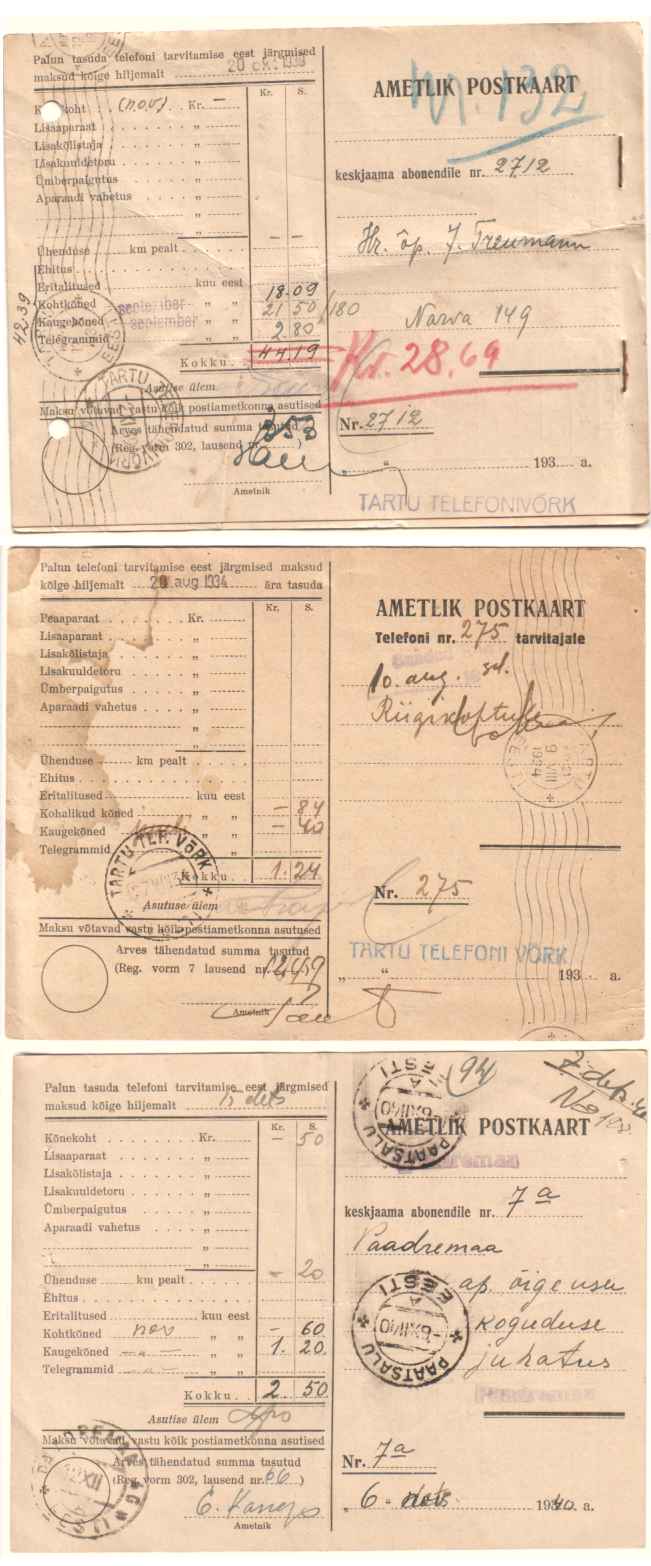 Palun tasuda telefoni tarvitamise eest järgmised
maksud kõige hiljemalt 20 okt. 1938
Kr. S.
Kõnekoht (nov) Kr. –
Lisaaparaat „
Lisakõlistaja „
Lisakuuldetoru „
Ümberpaigutus „
Aparaadi vahetus „
„
„ – –
Ühenduse km pealt
Ehitus
Eritalitused kuu eest 18.09
Kohtkõned september „ „ 21 50 /180
Kaugekõned september „ „ 2.80
Telegrammid „ „
Kokku 44.19
42 39
Asutise ülem
Maksu võtavad vastu kõik postiametkonna asutised
Arves tähendatud summa tasutud
(Reg. vorm 302, lausend nr. 353 )
Ametnik
TARTU
EESTI
AMETLIK POSTKAART
Nr. 132
keskjaama abonendile nr. 2712
Hr. õp. J. Treumann
Narva 149
Kr. 28.69
Nr. 2712
„ “ 193 a.
TARTU TELEFONIVÕRK
Palun telefoni tarvitamise eest järgmised maksud
kõige hiljemalt 20 aug 1934 ära tasuda
Kr. S.
Peaaparaat Kr.
Lisaaparaat „
Lisakõlistaja „
Lisakuuldetoru „
Ümberpaigutus „
Aparaadi vahetus „
„
„
Ühenduse km pealt
Ehitus
Eritalitused kuu eest
Kohalikud kõned „ „ – 84
Kaugekõned „ „ – 40
Telegrammid „ „
Kokku 1. 24
TARTU TLF. VÕRK
Asutuse ülem
Maksu võtavad vastu kõik postiametkonna asutused
Arves tähendatud summa tasutud
(Reg. vorm 7 lausend nr.
Ametnik
AMETLIK POSTKAART
Telefoni nr. 275 tarvitajale
10. aug.
TARTU
9 VIII
1934
EESTI
Nr. 275
TARTU TELEFONI VÕRK
„ “ 193 a.
Palun tasuda telefoni tarvitamise eest järgmised
maksud kõige hiljemalt 15 dets
Kr. S.
Kõnekoht Kr. – 50
Lisaaparaat „
Lisakõlistaja „
Lisakuuldetoru „
Ümberpaigutus „
Aparaadi vahetus „
„
„
Ühenduse km pealt – 20
Ehitus
Eritalitused kuu eest
Kohtkõned nov „ „ – 60
Kaugekõned –„– „ „ 1. 20
Telegrammid –„– „ „
Kokku 2. 50
Asutise ülem
Maksu võtavad vastu kõik postiametkonna asutised
Arves tähendatud summa tasutud
(Reg. vorm 302, lausend nr. 66 )
Ametnik
94
7. dets. 40
AMETLIK POSTKAART
PAATSALU
EESTI
-6.XII.40
keskjaama abonendile nr. 7 a
Paadremaa
ap. õigeusu
koguduse
juhatus
PAATSALU
EESTI
A
-6.XII.40
Nr. 7a
„ 6 “ dets. 1940. a.